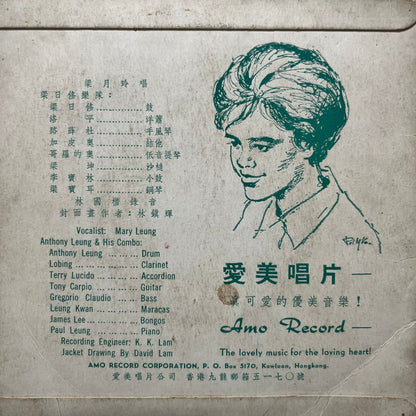 梁月玲唱
梁日修樂隊：
梁日修..........鼓
洛平..........洋簫
路薛杜..........手風琴
加皮奧..........結他
哥羅的奧..........低音提琴
梁坤..........沙槌
李寶林..........小鼓
梁寶耳..........鋼琴
林國楷錄音
封面畫作者：林鎮輝
Vocalist: Mary Leung
Anthony Leung & His Combo:
Anthony Leung ..... Drum
Lobing ..... Clarinet
Terry Lucido ..... Accordion
Tony Carpio ..... Guitar
Gregorio Claudio ..... Bass
Leung Kwan ..... Maracas
James Lee ..... Bongos
Paul Leung ..... Piano
Recording Engineer: K. K. Lam
Jacket Drawing By David Lam
愛美唱片—
最可愛的優美音樂！
Amo Record—
The lovely music for the loving heart!
AMO RECORD CORPORATION, P. O. Box 5170, Kowloon, Hongkong.
愛美唱片公司 香港九龍郵箱五一七〇號